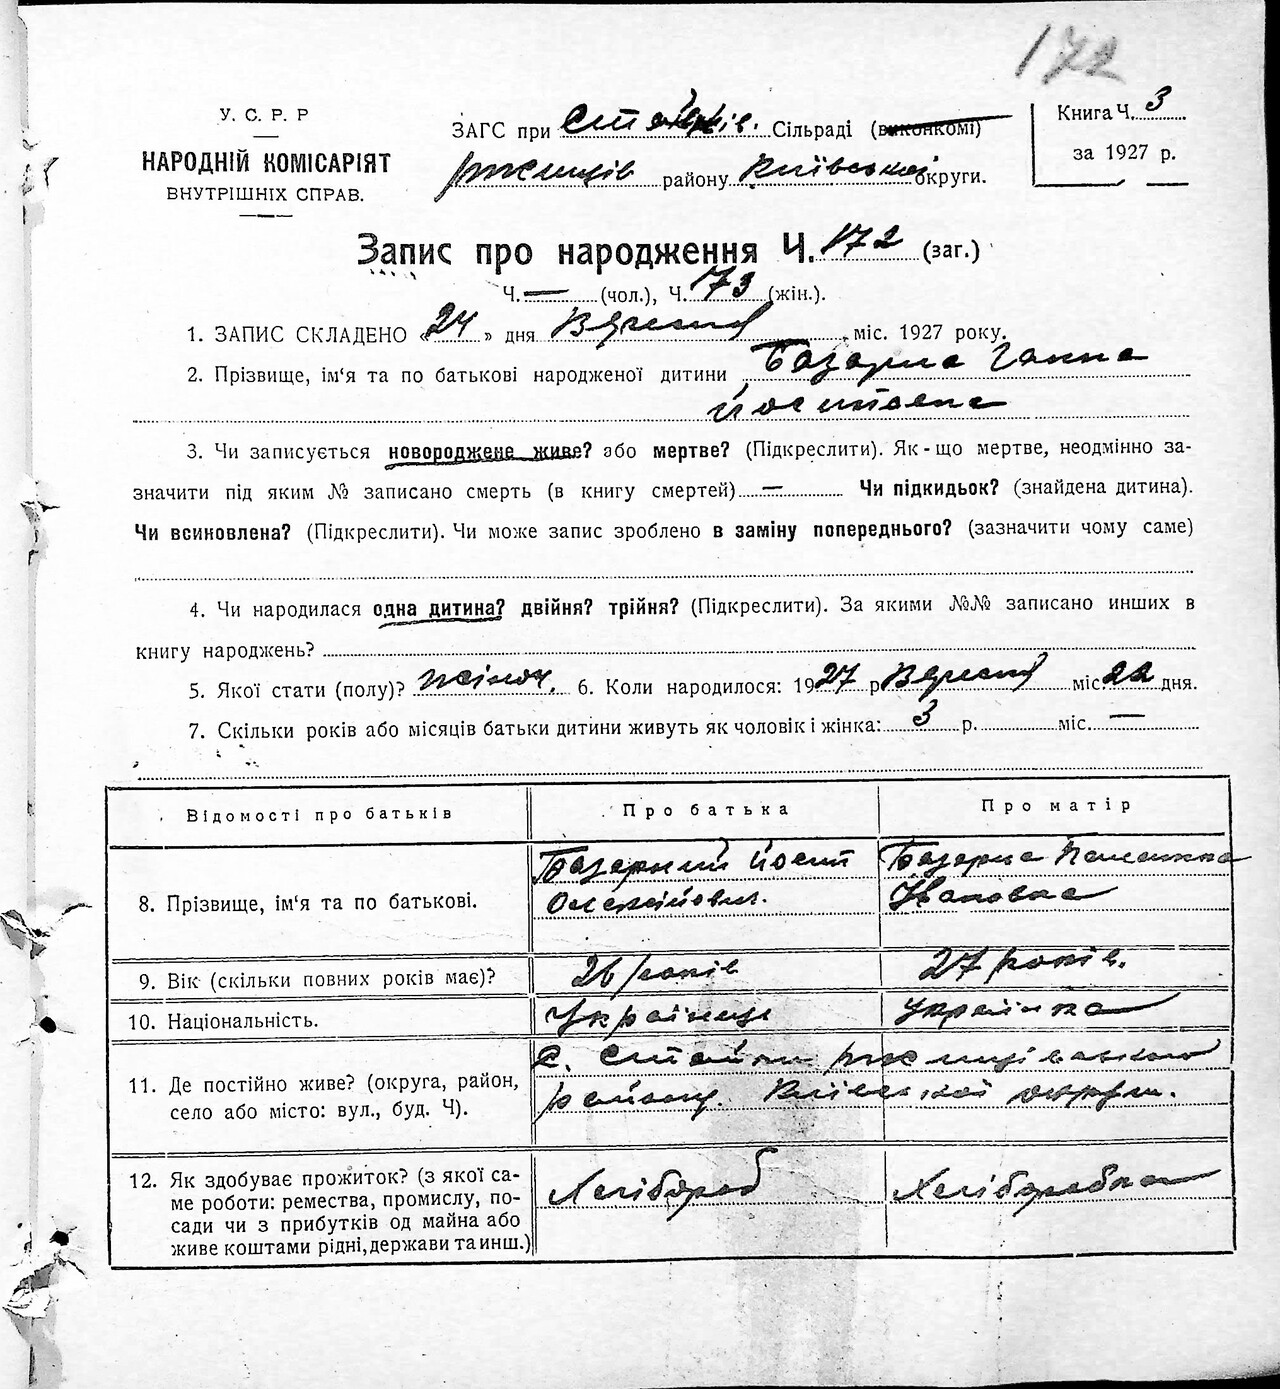 172
У. С. Р. Р
НАРОДНІЙ КОМІСАРІЯТ
ВНУТРІШНІХ СПРАВ.
ЗАГС при Стайків. Сільраді (виконкомі)
Ржищів району Київської округи.
Книга Ч. 3
за 1927 р.
Запис про народження Ч. 172 (заг.)
Ч. — (чол.), Ч. 73 (жін.).
1. ЗАПИС СКЛАДЕНО «24» дня Вересня міс. 1927 року.
2. Прізвище, ім'я та по батькові народженої дитини Базарна Ганна
Йосиповна
3. Чи записується новороджене живе? або мертве? (Підкреслити). Як-що мертве, неодмінно за-
значити під яким № записано смерть (в книгу смертей) — Чи підкидьок? (знайдена дитина).
Чи всиновлена? (Підкреслити). Чи може запис зроблено в заміну попереднього? (зазначити чому саме)
4. Чи народилася одна дитина? двійня? трійня? (Підкреслити). За якими №№ записано инших в
книгу народжень?
5. Якої стати (полу)? жіноч. 6. Коли народилося: 1927 р Вересня міс. 22 дня.
7. Скільки років або місяців батьки дитини живуть як чоловік і жінка: 3 р. міс. —
Відомості про батьків Про батька Про матір
8. Прізвище, ім'я та по батькові. Базарний Йосип Базарна
Олексійович. Івановна
9. Вік (скільки повних років має)? 26 років 27 років.
10. Національність. Українець Українка
11. Де постійно живе? (округа, район,
село або місто: вул., буд. Ч).
С. Стайки Ржищівського
району. Київської округи.
12. Як здобуває прожиток? (з якої са-
ме роботи: ремества, промислу, по-
сади чи з прибутків од майна або
живе коштами рідні, держави та инш.)
Хлібороб Хліборобка